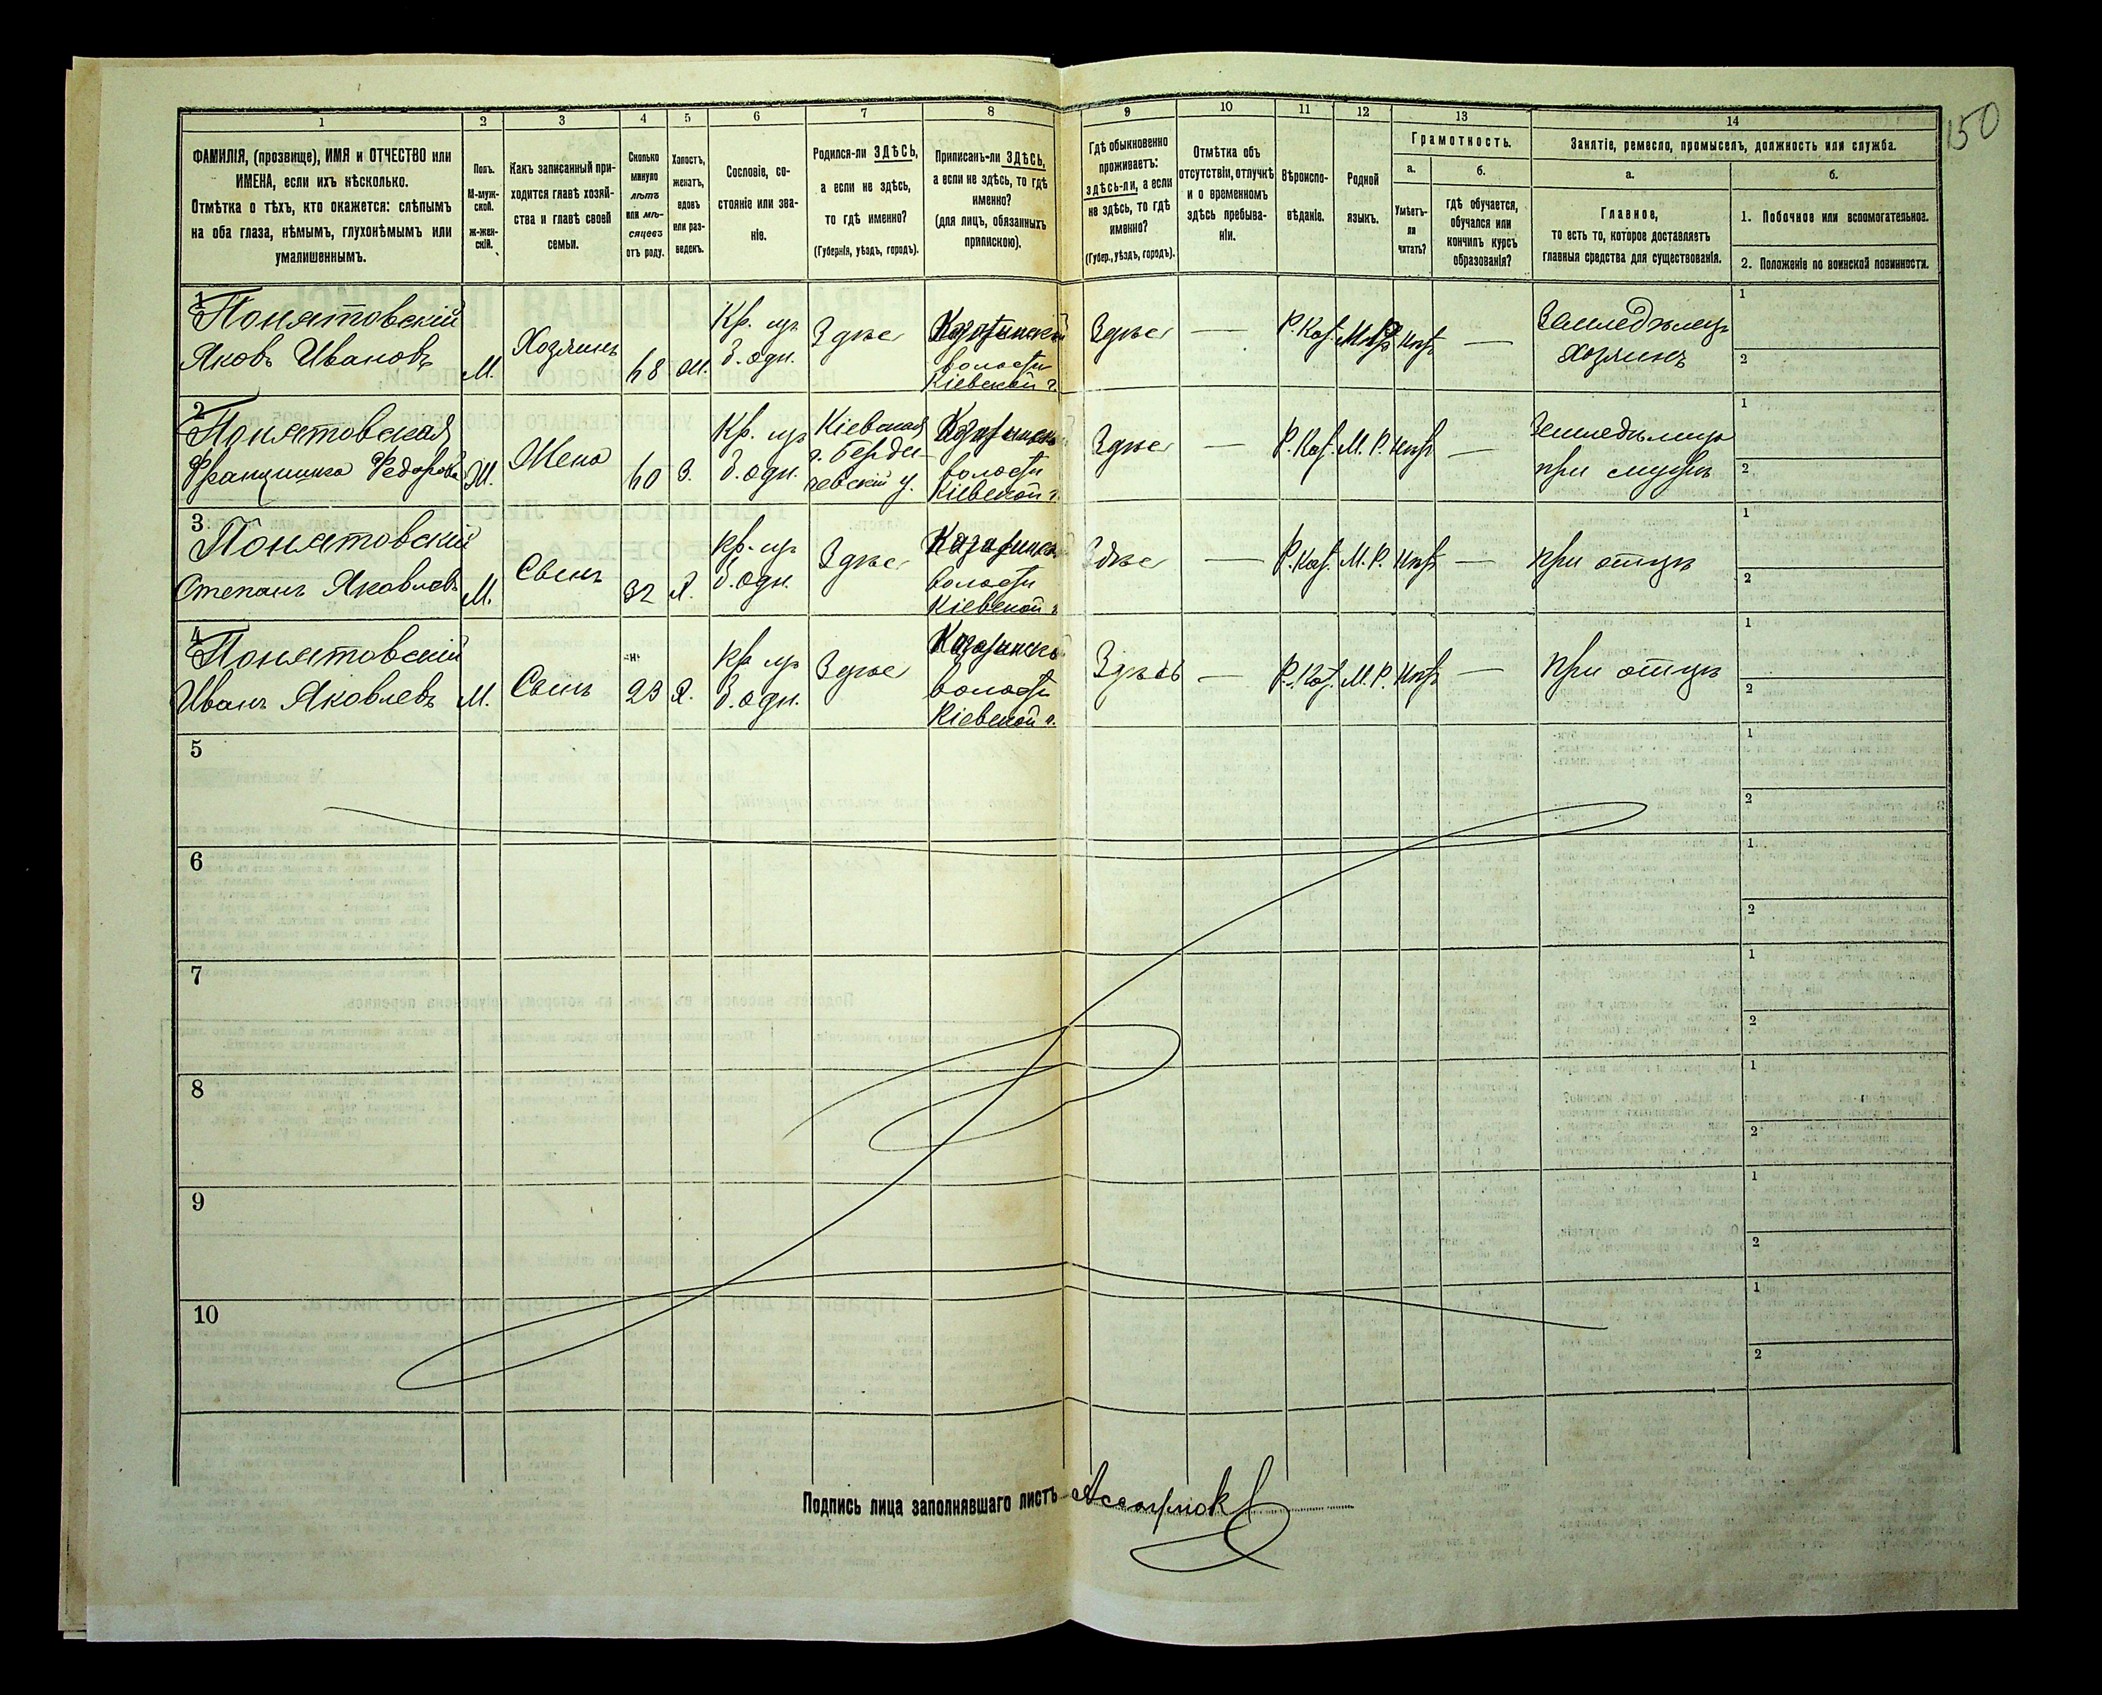 150
1 2 3 4 5 6 7 8 9 10 11 12 13 14
ФАМИЛІЯ, (прозвище), ИМЯ и ОТЧЕСТВО или
ИМЕНА, если ихъ нѣсколько.
Отмѣтка о тѣхъ, кто окажется: слѣпымъ
на оба глаза, нѣмымъ, глухонѣмымъ или
умалишеннымъ.
Полъ.
М-муж-
ской.
ж-жен-
скій.
Какъ записанный при-
ходится главѣ хозяй-
ства и главѣ своей
семьи.
Сколько
минуло
лѣтъ
или мѣ-
сяцевъ
отъ роду.
Холостъ,
женатъ,
вдовъ
или раз-
веденъ.
Сословіе, со-
стояніе или зва-
ніе.
Родился-ли ЗДѢСЬ,
а если не здѣсь,
то гдѣ именно?
(Губернія, уѣздъ, городъ).
Приписанъ-ли ЗДѢСЬ,
а если не здѣсь, то гдѣ
именно?
(для лицъ, обязанныхъ
припискою).
Гдѣ обыкновенно
проживаетъ:
здѣсь-ли, а если
не здѣсь, то гдѣ
именно?
(Губер., уѣздъ, городъ).
Отмѣтка объ
отсутствіи, отлучкѣ
и о временномъ
здѣсь пребыва-
ніи.
Вѣроиспо-
вѣданіе.
Родной
языкъ.
Грамотность.
а.
Умѣетъ-
ли
читать?
б.
гдѣ обучается,
обучался или
кончилъ курсъ
образованія?
Занятіе, ремесло, промыселъ, должность или служба.
а.
Главное,
то есть то, которое доставляетъ
главныя средства для существованія.
б.
1. Побочное или вспомогательное.
2. Положеніе по воинской повинности.
1
Понятовскій
Яковъ Ивановъ
М.
Хозяинъ
68
Кр. из
б. одн.
Здѣсь
волости
Кіевской г.
Здѣсь
—
Р. Кат.
—
Земледѣлецъ
хозяинъ
1
2
2
Понятовская
Францишка
Ж.
Жена
60
З.
Кр. из
б. одн.
Кіевская
г. Берди-
чевскій у.
волости
Кіевской г.
Здѣсь
—
Р. Кат.
М. Р.
Нѣтъ
—
при мужѣ
1
2
3
Понятовскій
Степанъ Яковлевъ
М.
Сынъ
32
Х.
Кр. из
б. одн.
Здѣсь
волости
Кіевской г.
Здѣсь
—
Р. Кат.
М. Р.
Нѣтъ
—
при отцѣ
1
2
4
Понятовскій
Иванъ Яковлевъ
М.
Сынъ
23
Х.
Кр из
б. одн.
Здѣсь
волости
Кіевской г.
Здѣсь
—
Р. Кат.
М. Р.
Нѣтъ
—
при отцѣ
1
2
5
1
2
6
1
2
7
1
2
8
1
2
9
1
2
10
1
2
Подпись лица заполнявшаго листъ